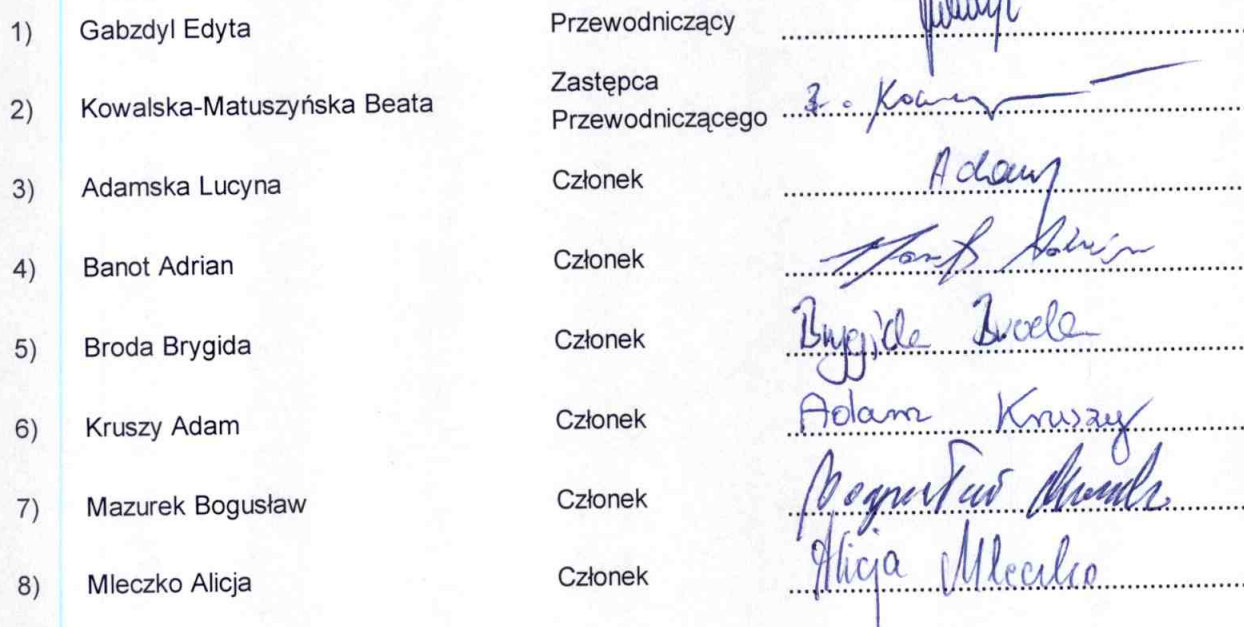 1) Gabzdyl Edyta Przewodniczący
2) Kowalska-Matuszyńska Beata Zastępca Przewodniczącego
3) Adamska Lucyna Członek
4) Banot Adrian Członek
5) Broda Brygida Członek Brygida Broda
6) Kruszy Adam Członek Adam Kruszy
7) Mazurek Bogusław Członek
8) Mleczko Alicja Członek Alicja Mleczko